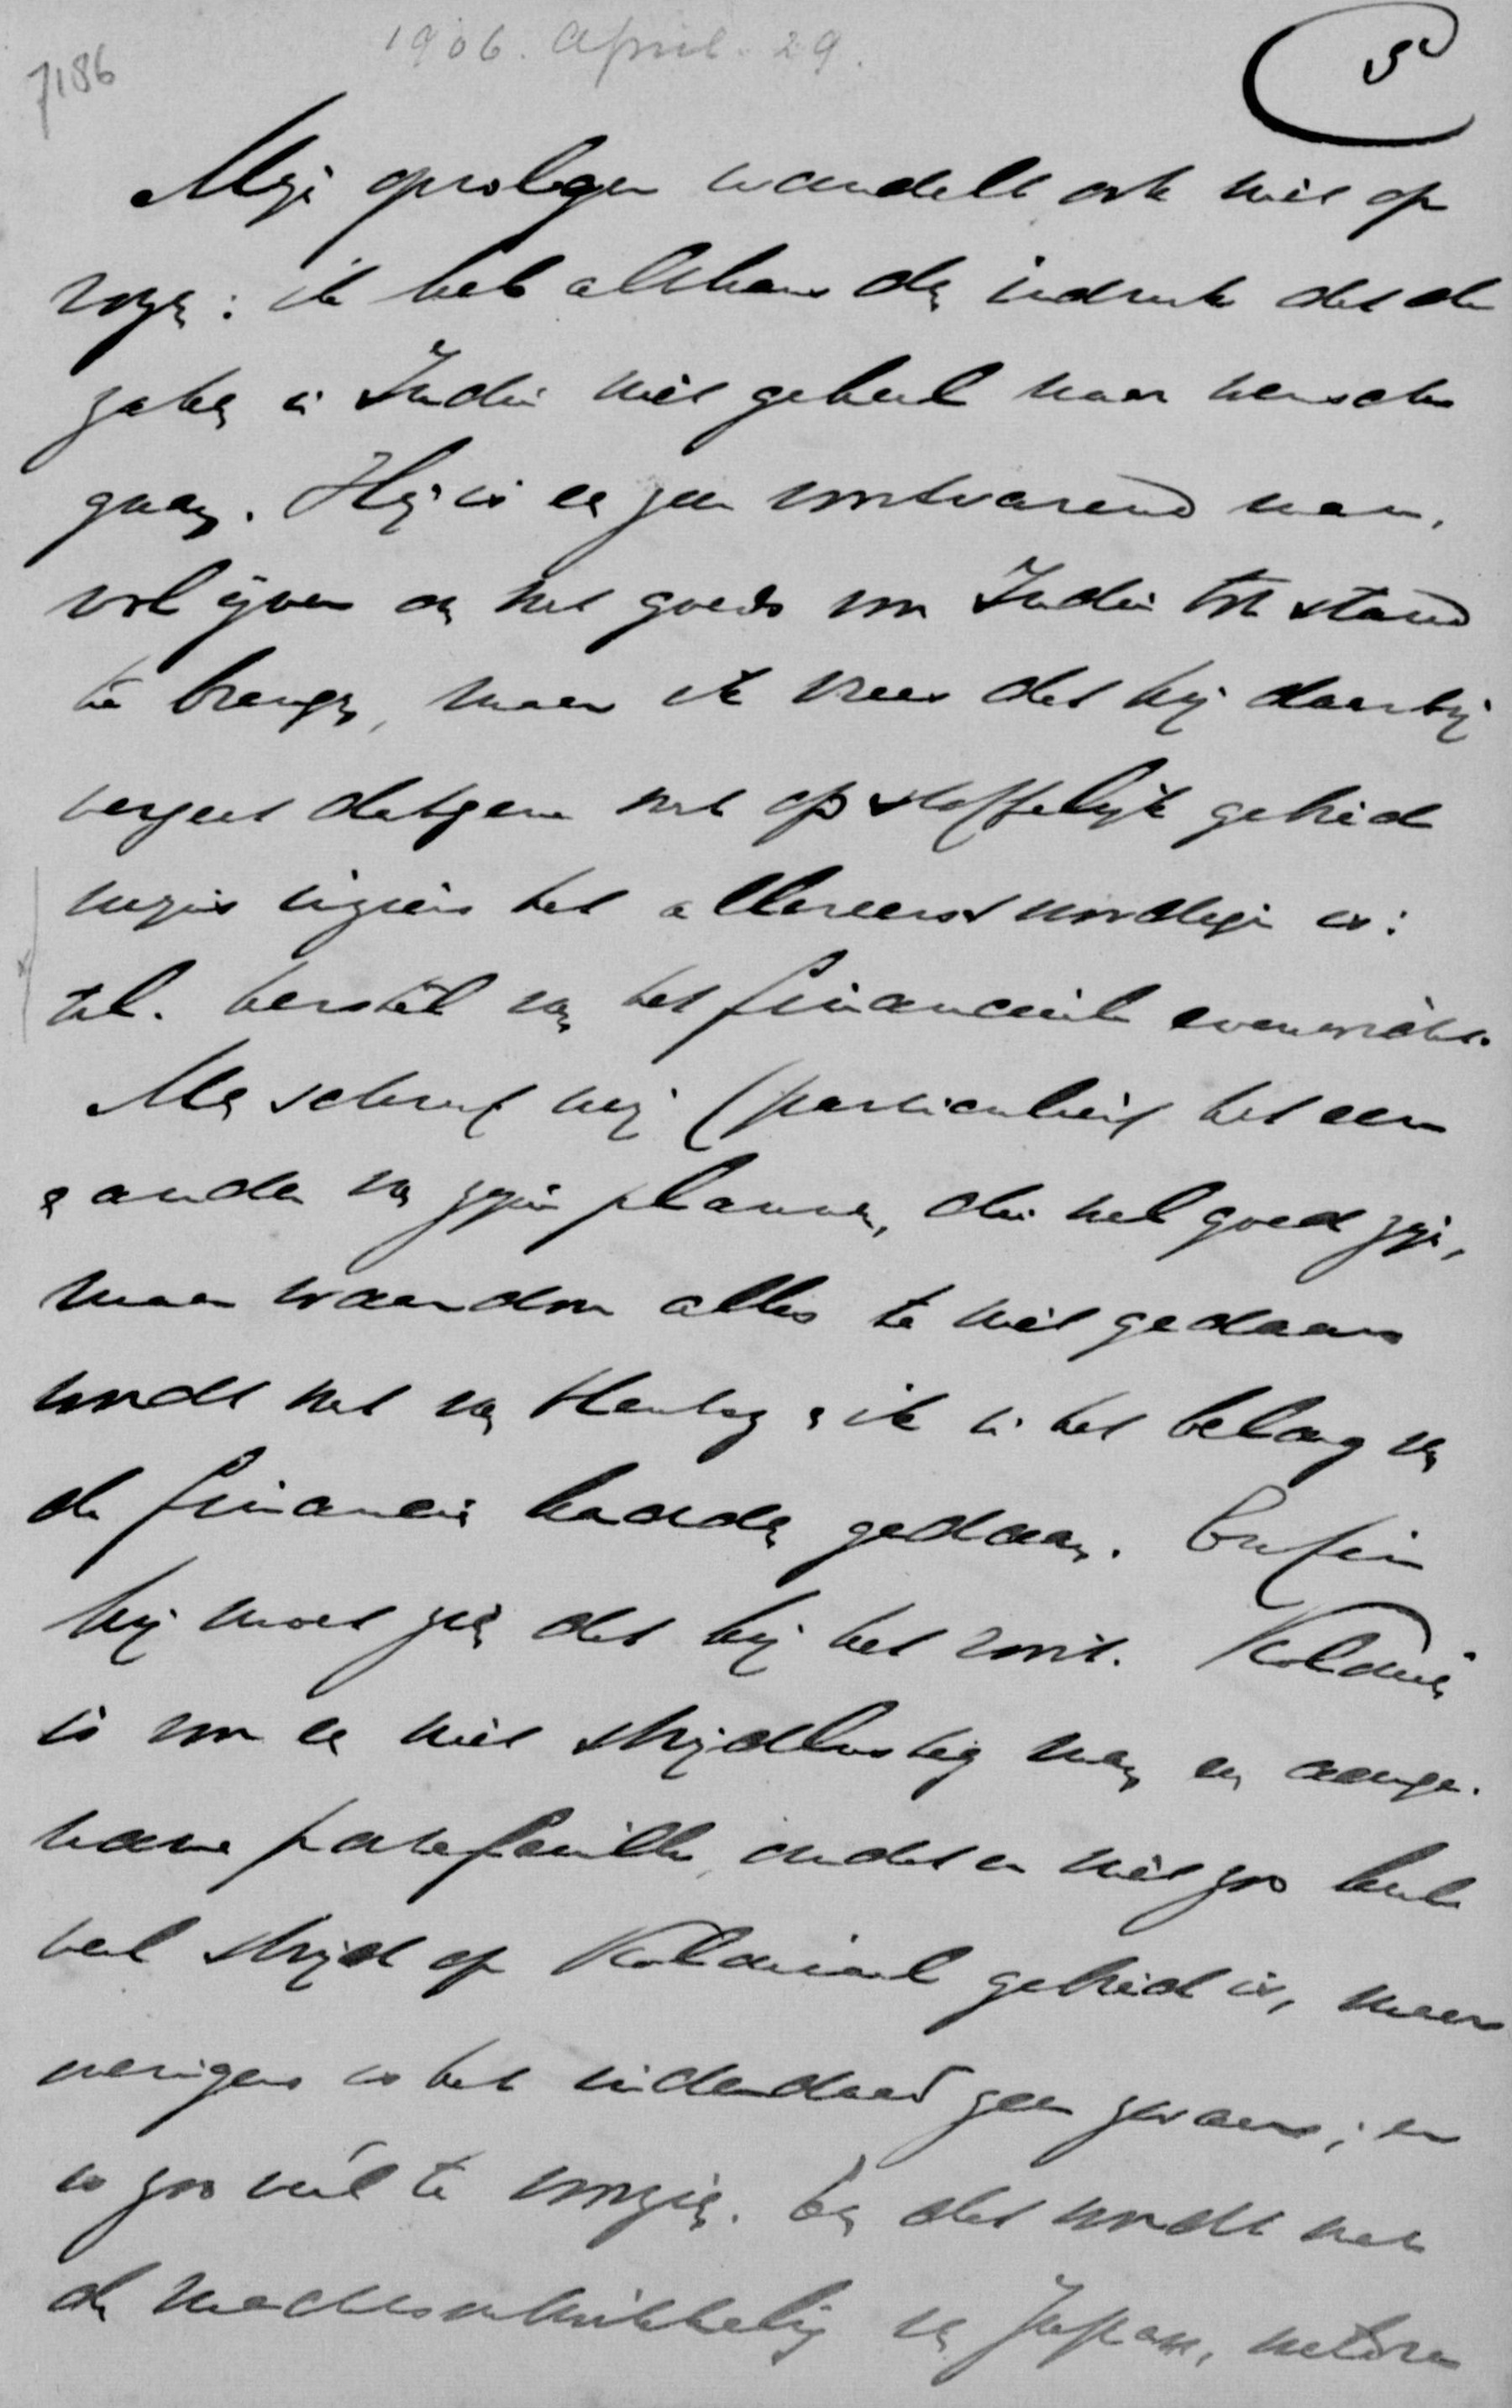 1906. April. 29.
7186
5
Mijn opvolger wandelt ook niet op
rozen: ik heb althans den indruk dat de
zaken in Indië niet geheel naar wensch
gaan. Hij is een zeer voortvarend man,
vol ijver om het goede voor Indië tot stand
te brengen, maar ik vrees dat hij daarbij
vergeet datgene wat op stoffelijk gebied
mijns inziens het allereerst noodige is:
t.l. herstel van het financieele evenwicht.
Men schreef mij (particulier) het een
en ander van zijn plannen, die wel goed zijn,
maar waardoor alles te niet gedaan
wordt wat van Heutsz en ik in het belang van
de financiën hadden gedaan. Enfin
hij moet zien dat hij het rooit. Koloniën
is voor een niet strijdlustig man een aange-
name portefeuille, omdat er niet zoo heel
veel strijd op Koloniaal gebied is, maar
overigens is het inderdaad geen; er
is zoo veel te voorzien. En dat wordt met
de machtsontwikkeling van Japan,